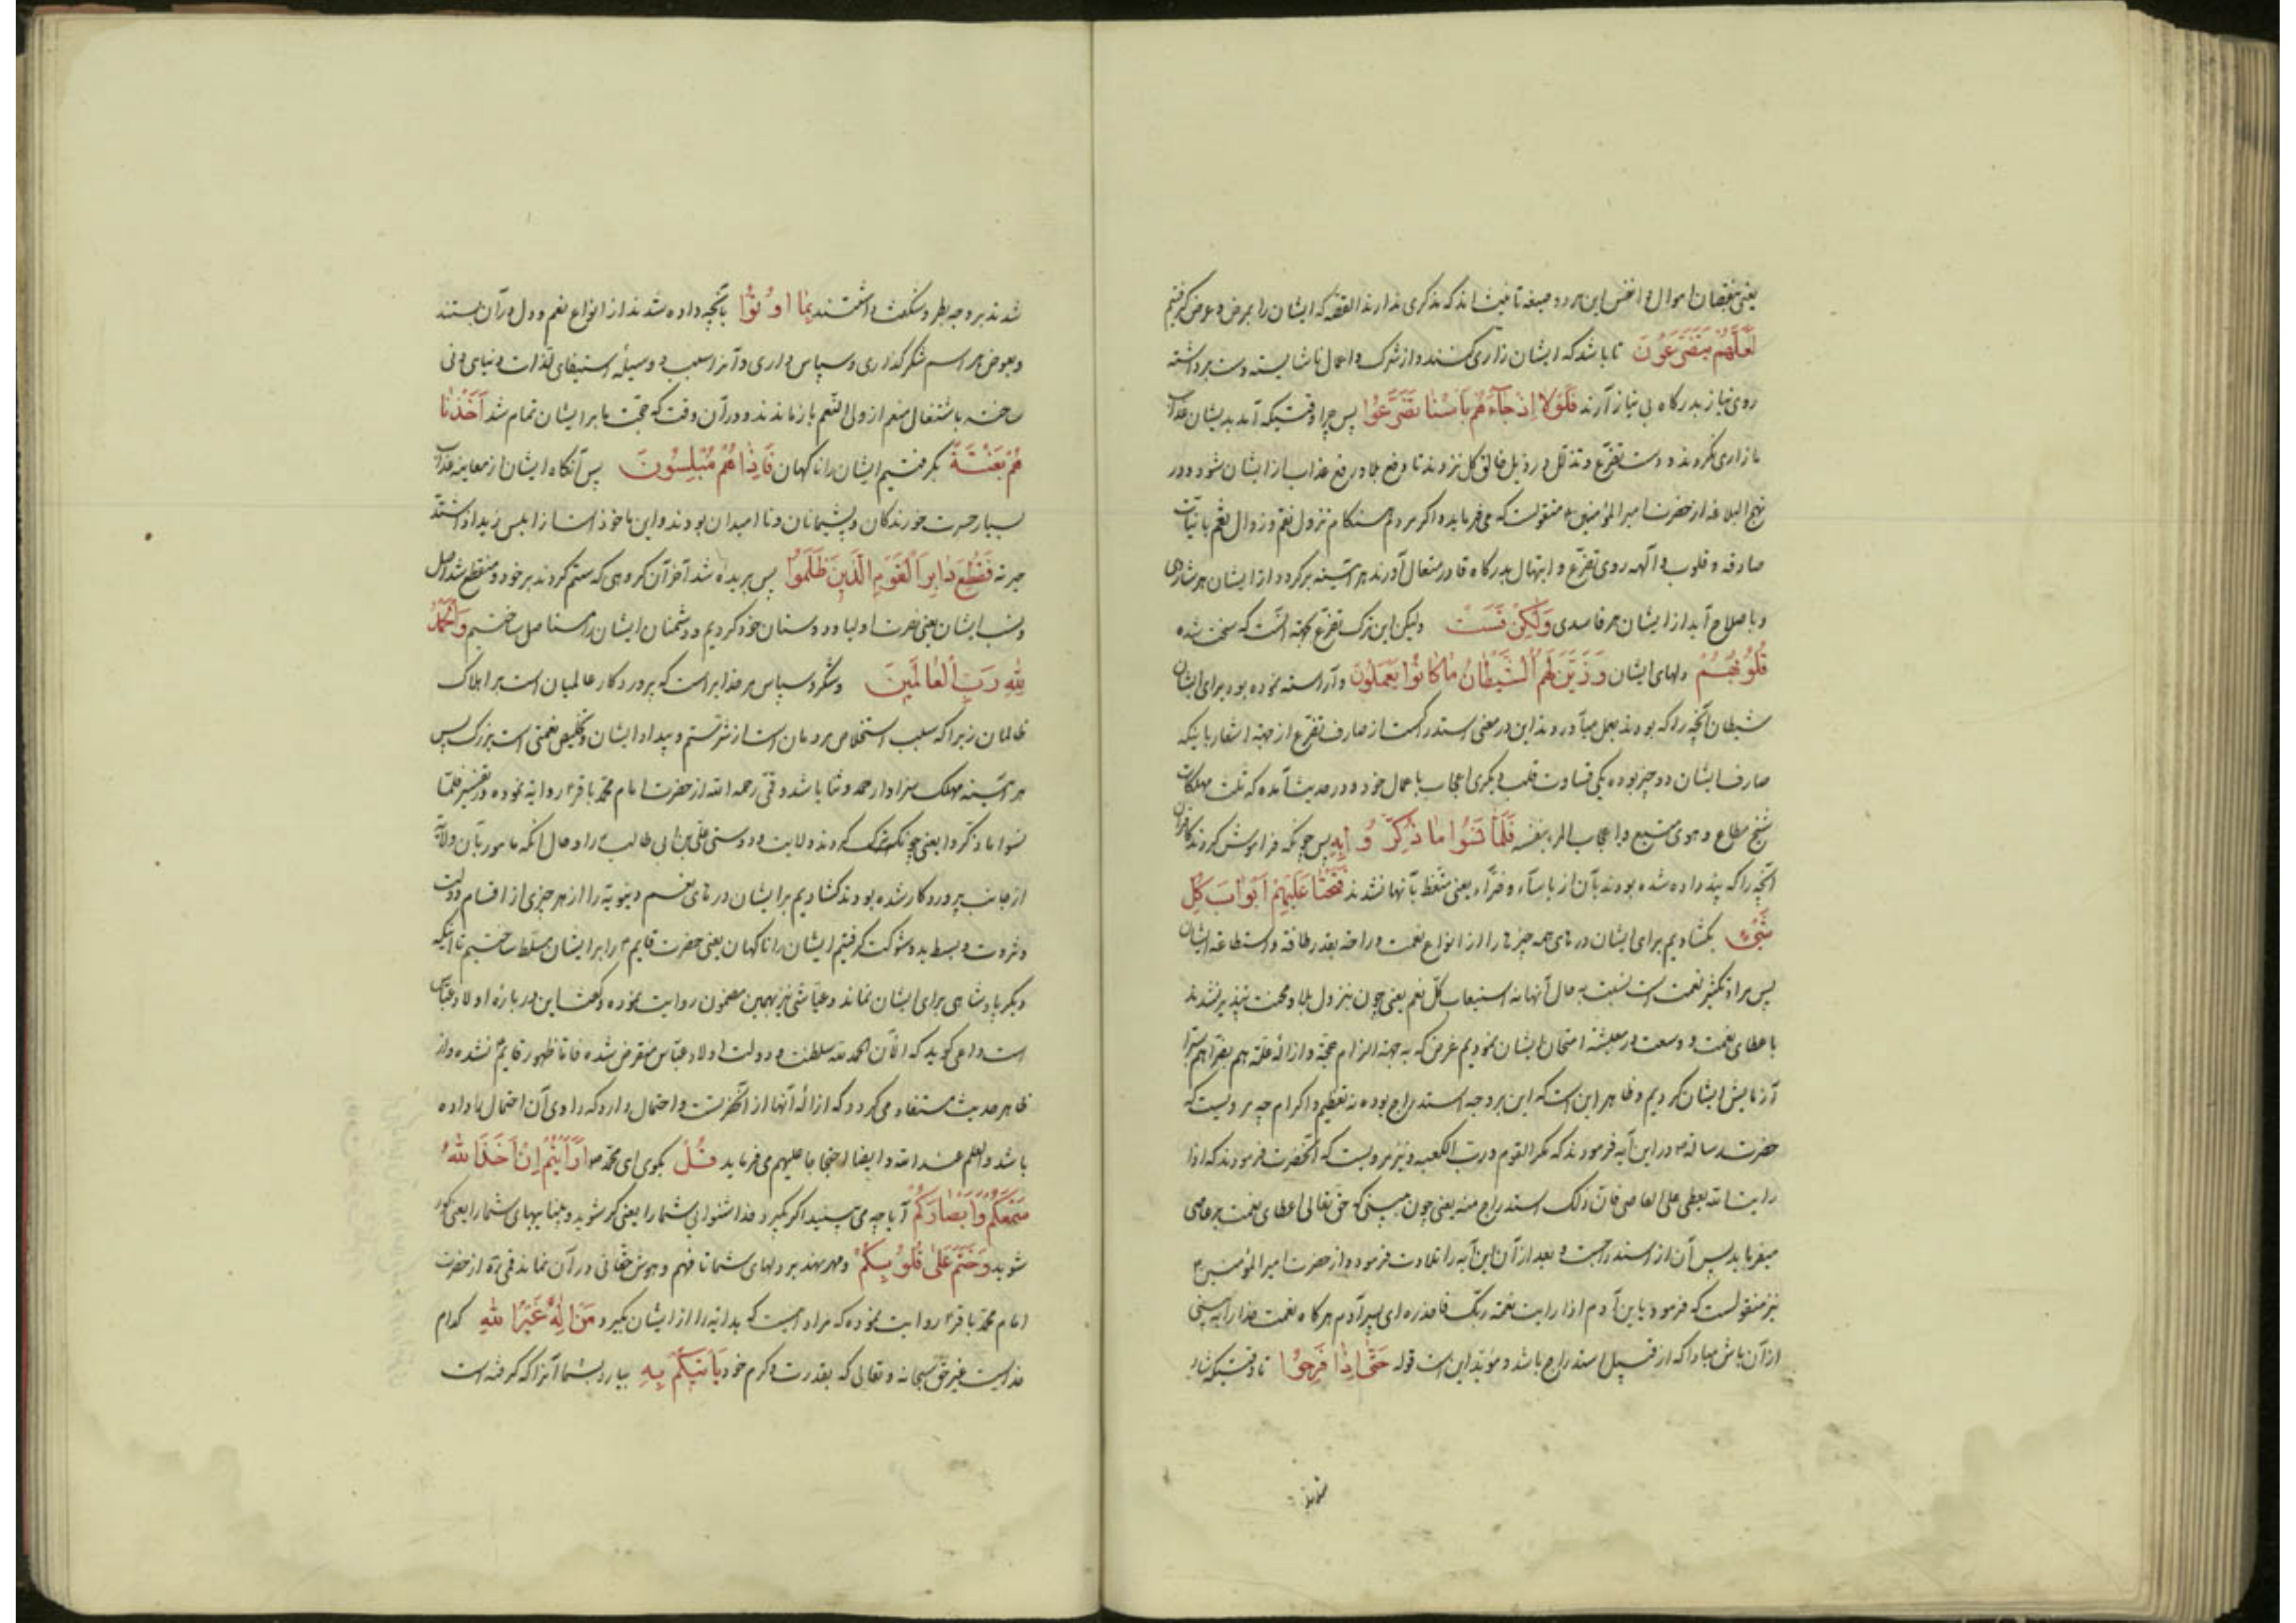 یعنی بنقصان اموال و انفس این هر دو صیغه تانیث‌اند که مذکری ندارند القصه که ایشان را بمرض و عوض گرفتیم
لَعَلَّهُمْ یَتَضَرَّعُونَ تا باشد که ایشان زاری کنند و از شرک و اعمال ناشایسته دست برداشته
روی نیاز بدرگاه بی نیاز آرند فَلَوْلا اِذْ جاءَهُمْ بَأْسُنا تَضَرَّعُوا پس چرا وقتیکه آمد بدیشان عذاب
ما زاری نکردند و دست تضرع و تذلل در ذیل خالق کل نزدند تا دفع بلا و رفع عذاب از ایشان شود و در
نهج البلاغه از حضرت امیر المؤمنین منقولست که می‌فرماید و اگر مردم هنگام نزول نقم و زوال نعم با نیّات
صادقه و قلوب والهه روی تضرع و ابتهال بدرگاه قادر متعال آورند هر آئینه برگردد از ایشان هر شاردی
و باصلاح آید از ایشان هر فاسدی وَلکِنْ قَسَتْ ولیکن این ترک تضرع بجهة آنست که سخت شده
قُلُوبُهُمْ دلهای ایشان وَ زَیَّنَ لَهُمُ الشَّیْطانُ ما کانُوا یَعْمَلُونَ و آراسته نموده بود برای ایشان
شیطان آنچه را که بودند بعمل میآوردند این در معنی استدراکست از صارف تضرع از جهة اشعار باینکه
صارف ایشان دو چیز بوده یکی قساوت قلب دیگری اعجاب باعمال خود و در حدیث آمده که ثلث مهلکات
شح مطاع و هوی متبع و اعجاب المرء بنفسه فَلَمّا نَسُوا ما ذُکِّرُوا بِهِ پس چونکه فراموش کردند کافران
آنچه را که پند داده شده بودند بآن از بأساء و ضرّاء یعنی متعظ بآنها نشدند فَتَحْنا عَلَیْهِمْ اَبْوابَ کُلِّ
شَیْءٍ بگشادیم برای ایشان درهای همه چیز را از انواع نعمت و راحة بقدر طاقة و استطاعة ایشان
پس مراد تکثیر نعمت است نسبت به حال آنها نه استیعاب کل نعم یعنی چون بنزول بلا و محنت پندپذیر نشدند
باعطای نعمت و وسعت در معیشة امتحان ایشان نمودیم غرض که به جهة الزام حجة و ازاله علّة هم بضرّا هم بسرّا
آزمایش ایشان کردیم و ظاهر این است که این بر وجه استدراج بوده نه تعظیم و اکرام چه مرویست که
حضرت رسالة در این آیه فرمودند که مکر القوم و رب الکعبه و نیز مرویست که آنحضرت فرمودند که اذا
رایت الله یعطی علی المعاصی فان ذلک استدراج منه یعنی چون ببینی که حق تعالی اعطای نعمت بر عاصی
میفرماید پس آن از استدراجست و بعد از آن این آیه را تلاوت فرمود و از حضرت امیر المؤمنین
نیز منقولست که فرمود یابن آدم اذا رایت نعمة ربک فاحذره ای پسر آدم هرگاه نعمت خدا را به بینی
از آن باش مبادا که از قبیل استدراج باشد و مؤید این است قوله حَتّی اِذا فَرِحُوا تا وقتیکه شاد
شدند
شدند بر وجه بطر و شگفت داشتند بِما اُوتُوا بآنچه داده شدند از انواع نعم و دل در آن بستند
و بعوض مراسم شکرگذاری و سپاس داری و آنرا سبب و وسیله استیفای لذات دنیای دنی
ساخته باشتغال نعم از ولی النعم باز ماندند و در آن وقت که حجت ما بر ایشان تمام شد اَخَذْنا
هُمْ بَغْتَةً بگرفتیم ایشان را ناگهان فَاِذا هُمْ مُبْلِسُونَ پس آنگاه ایشان از معاینه عذاب
بسیار حسرت خورندگان و پشیمانان و ناامیدان بودند و این ماخوذ است از ابلس زید اذا اشتد
حسرته فَقُطِعَ دابِرُ الْقَوْمِ الَّذینَ ظَلَمُوا پس بریده شد آخر آن گروهی که ستم کردند بر خود و منقطع شد اصل
و نسب ایشان یعنی نصرت اولیا و دوستان خود کردیم و دشمنان ایشان را مستاصل ساختیم وَالْحَمْدُ
لِلّهِ رَبِّ الْعالَمینَ و شکر و سپاس مر خدایراست که پروردگار عالمیان است بر اهلاک
ظالمان زیرا که سبب استخلاص مردمان است از شر ستم و بیداد ایشان و تخلیص نعمتی است بزرگ پس
هر آئینه مهلک سزاوار حمد و ثنا باشد و قمی رحمه الله از حضرت امام محمد باقر روایة نموده در تفسیر فلمّا
نسوا ما ذکروا یعنی چونکه ترک کردند ولایت و دوستی علی بن ابی طالب را و حال آنکه مامور بآن ولایة
از جانب پروردگار شده بودند گشادیم بر ایشان درهای نعم دنیویة را از هر چیزی از اقسام دولت
و ثروت و بسط ید و شوکت گرفتیم ایشان را ناگهان یعنی حضرت قایم را بر ایشان مسلط ساختیم تا آنکه
دیگر پادشاهی برای ایشان نماند و عیاشی نیز بهمین مضمون روایت نموده و گفت این در باره اولاد عباس
است داعی گوید که الآن الحمد لله سلطنت و دولت اولاد عباس منقرض شده فاما ظهور قایم نشده و از
ظاهر حدیث مستفاد می‌گردد که ازاله آنها از آنحضرتست و احتمال دارد که راوی آن احتمال را داده
باشد والعلم عند الله و ایضا احتجاجا علیهم می‌فرماید قُلْ بگوی ای محمد اَرَاَیْتُمْ اِنْ اَخَذَ اللهُ
سَمْعَکُمْ وَ اَبْصارَکُمْ آیا چه می‌بینید اگر بگیرد خدا شنوایی شما را یعنی کر شوید و بینائیهای شما را یعنی کور
شوید وَ خَتَمَ عَلی قُلُوبِکُمْ و مهر نهد بر دلهای شما تا فهم و هوش حقانی در آن نماند قمی ره از حضرت
امام محمد باقر روایت نموده که مراد اینست که هدایة را از ایشان بگیرد مَنْ اِلهٌ غَیْرُ اللهِ کدام
خداییست غیر حق سبحانه و تعالی که بقدرت و کرم خود یَأْتیکُمْ بِهِ بیارد بشما آنرا که گرفته است